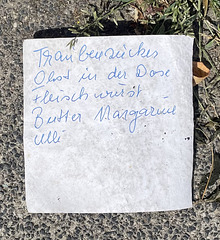 Traubenzucker
Obst in der Dose
Fleischwurst
Butter Margarine